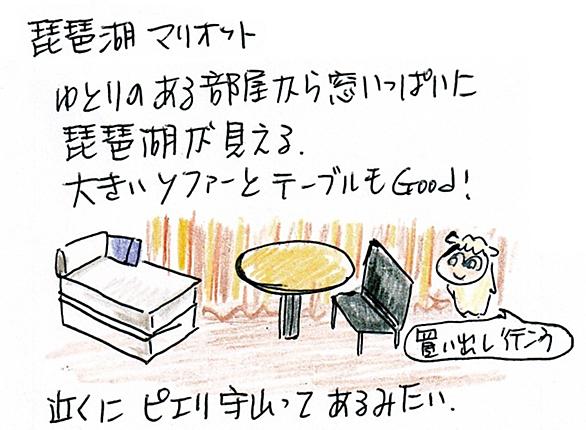 琵琶湖 マリオット
ゆとりのある部屋から窓いっぱいに
琵琶湖が見える.
大きいソファーとテーブルもGood!
買い出し行こう
近くに ピエリ守山って あるみたい.